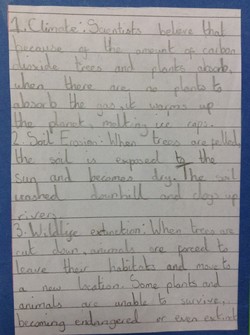 1. Climate: Scientists believe that
because of the amount of carbon
dioxide trees and plants absorb,
when there are no plants to
absorb the gas, it warms up
the planet, melting ice caps.
2. Soil Erosion: When trees are felled,
the soil is exposed to the
sun and becomes dry. The soil
washed downhill and clogs up
rivers.
3. Wildlife extinction: When trees are
cut down, animals are forced to
leave their habitats and move to
a new location. Some plants and
animals are unable to survive,
becoming endangered or even extinct